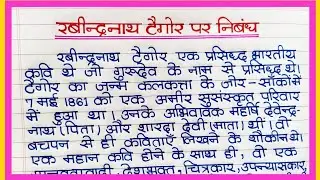 रबीन्द्रनाथ टैगोर पर निबंध
रबीन्द्रनाथ टैगोर एक प्रसिद्ध भारतीय
कवि थे जो गुरूदेव के नाम से प्रसिद्ध थे।
टैगोर का जन्म कलकत्ता के जोर-साँको में
7 मई 1861 को एक अमीर सुसंस्कृत परिवार
में हुआ था। उनके अभिवावक महर्षि देवेन्द्र-
नाथ (पिता) और शारदा देवी (माता) थीं। वो
बचपन से ही कविताएँ लिखने के शौकीन थे।
एक महान कवि होने के साथ ही, वो एक
मानवतावादी, देशभक्त, चित्रकार, उपन्यासकार,